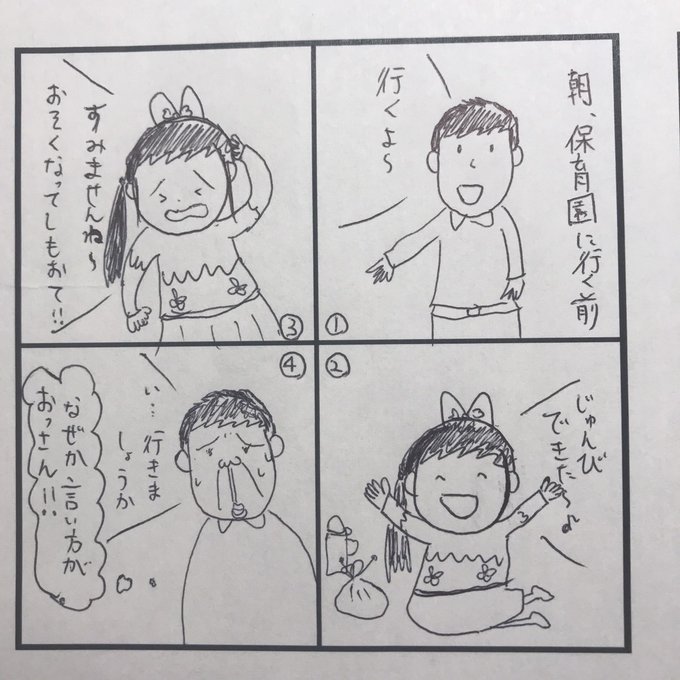 朝、保育園に行く前
行くよ〜
①
じゅんび
できたよ♪
②
すみませんね〜
おそくなってしもおて!!
③
い…行きま
しょうか
なぜか、言い方が
おっさん!!!
④